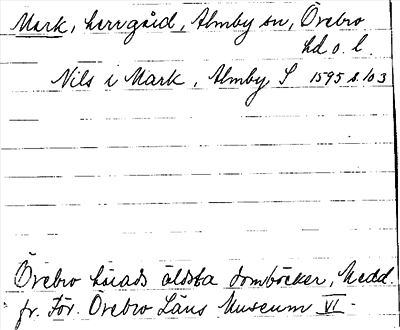 Mark, herrgård, Almby sn, Örebro
hd o. l.
Nils i Mark, Almby S 1595 s. 103
Örebro härads äldsta domböcker, Medd.
fr. För. Örebro Läns Museum VI.